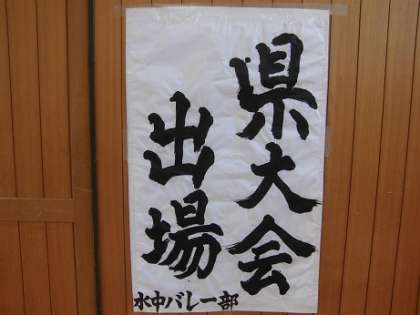 県大会
出場
水中バレー部